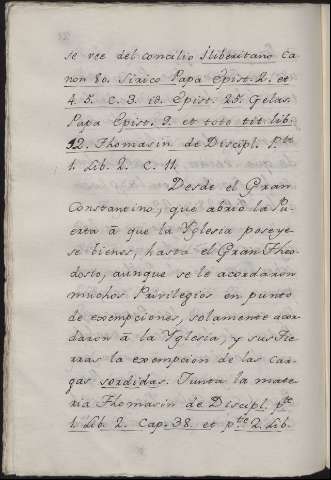 se vee del concilio Iliberitano Ca
non 80. Sirico Papa Epist. 2. et
4. 5. C. 3. id. Epist. 25. Gelas.
Papa Epist. 9. et toto tit. lib.
12. Thomasin de Discipl. P.te
1. Lib. 2. C. 11.
Desde el Gran
Constantino, que abrió la Pu-
erta à que la Yglesia poseye-
se bienes, hasta el Gran Theo-
dosio, aunque se le acordaron
muchos Privilegios en punto
de exempciones, solamente acor-
daron à la Yglesia, y sus Tie-
rras la exempcion de las car-
gas sordidas. Junta la mate-
ria Thomasin de Discipl. p.te
1. Lib. 2. Cap. 38. et p.te 2. Lib.